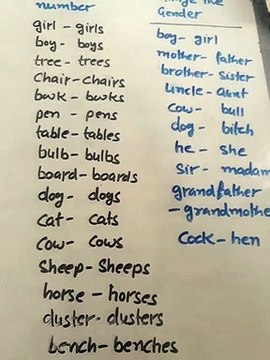 number
girl - girls
boy - boys
tree - trees
chair - chairs
book - books
pen - pens
table - tables
bulb - bulbs
board - boards
dog - dogs
cat - cats
cow - cows
sheep - sheeps
horse - horses
duster - dusters
bench - benches
the
Gender
boy - girl
mother - father
brother - sister
uncle - aunt
cow - bull
dog - bitch
he - she
sir - madam
grandfather
- grandmothe
cock - hen